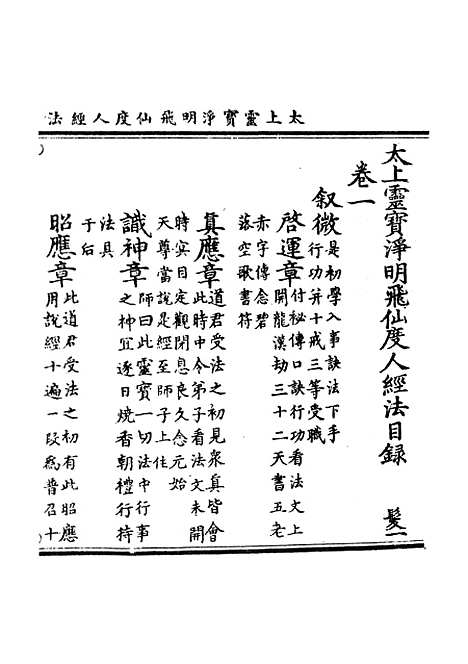 太上靈寳淨明飛仙度人經法
太上靈寳淨明飛仙度人經法目録　髮一
卷一
叙微是初學入事訣法下手
行功并十戒三等受職
啓運章付秘傳口訣行功看法文上
開龍漢劫三十二天書五老
赤字傳念碧
落空歌書符
真應章道君受法之初見衆真皆會
此時中令弟子看法文未開
時㝠目定觀閉息良久念元始
天尊當說是經至師子上住
識神章師曰此靈寳一切法中行事
之神宜逐日燒香朝禮行持
法具
于后
昭應章此道君受法之初有此昭應
用說經十遍一段爲普召十